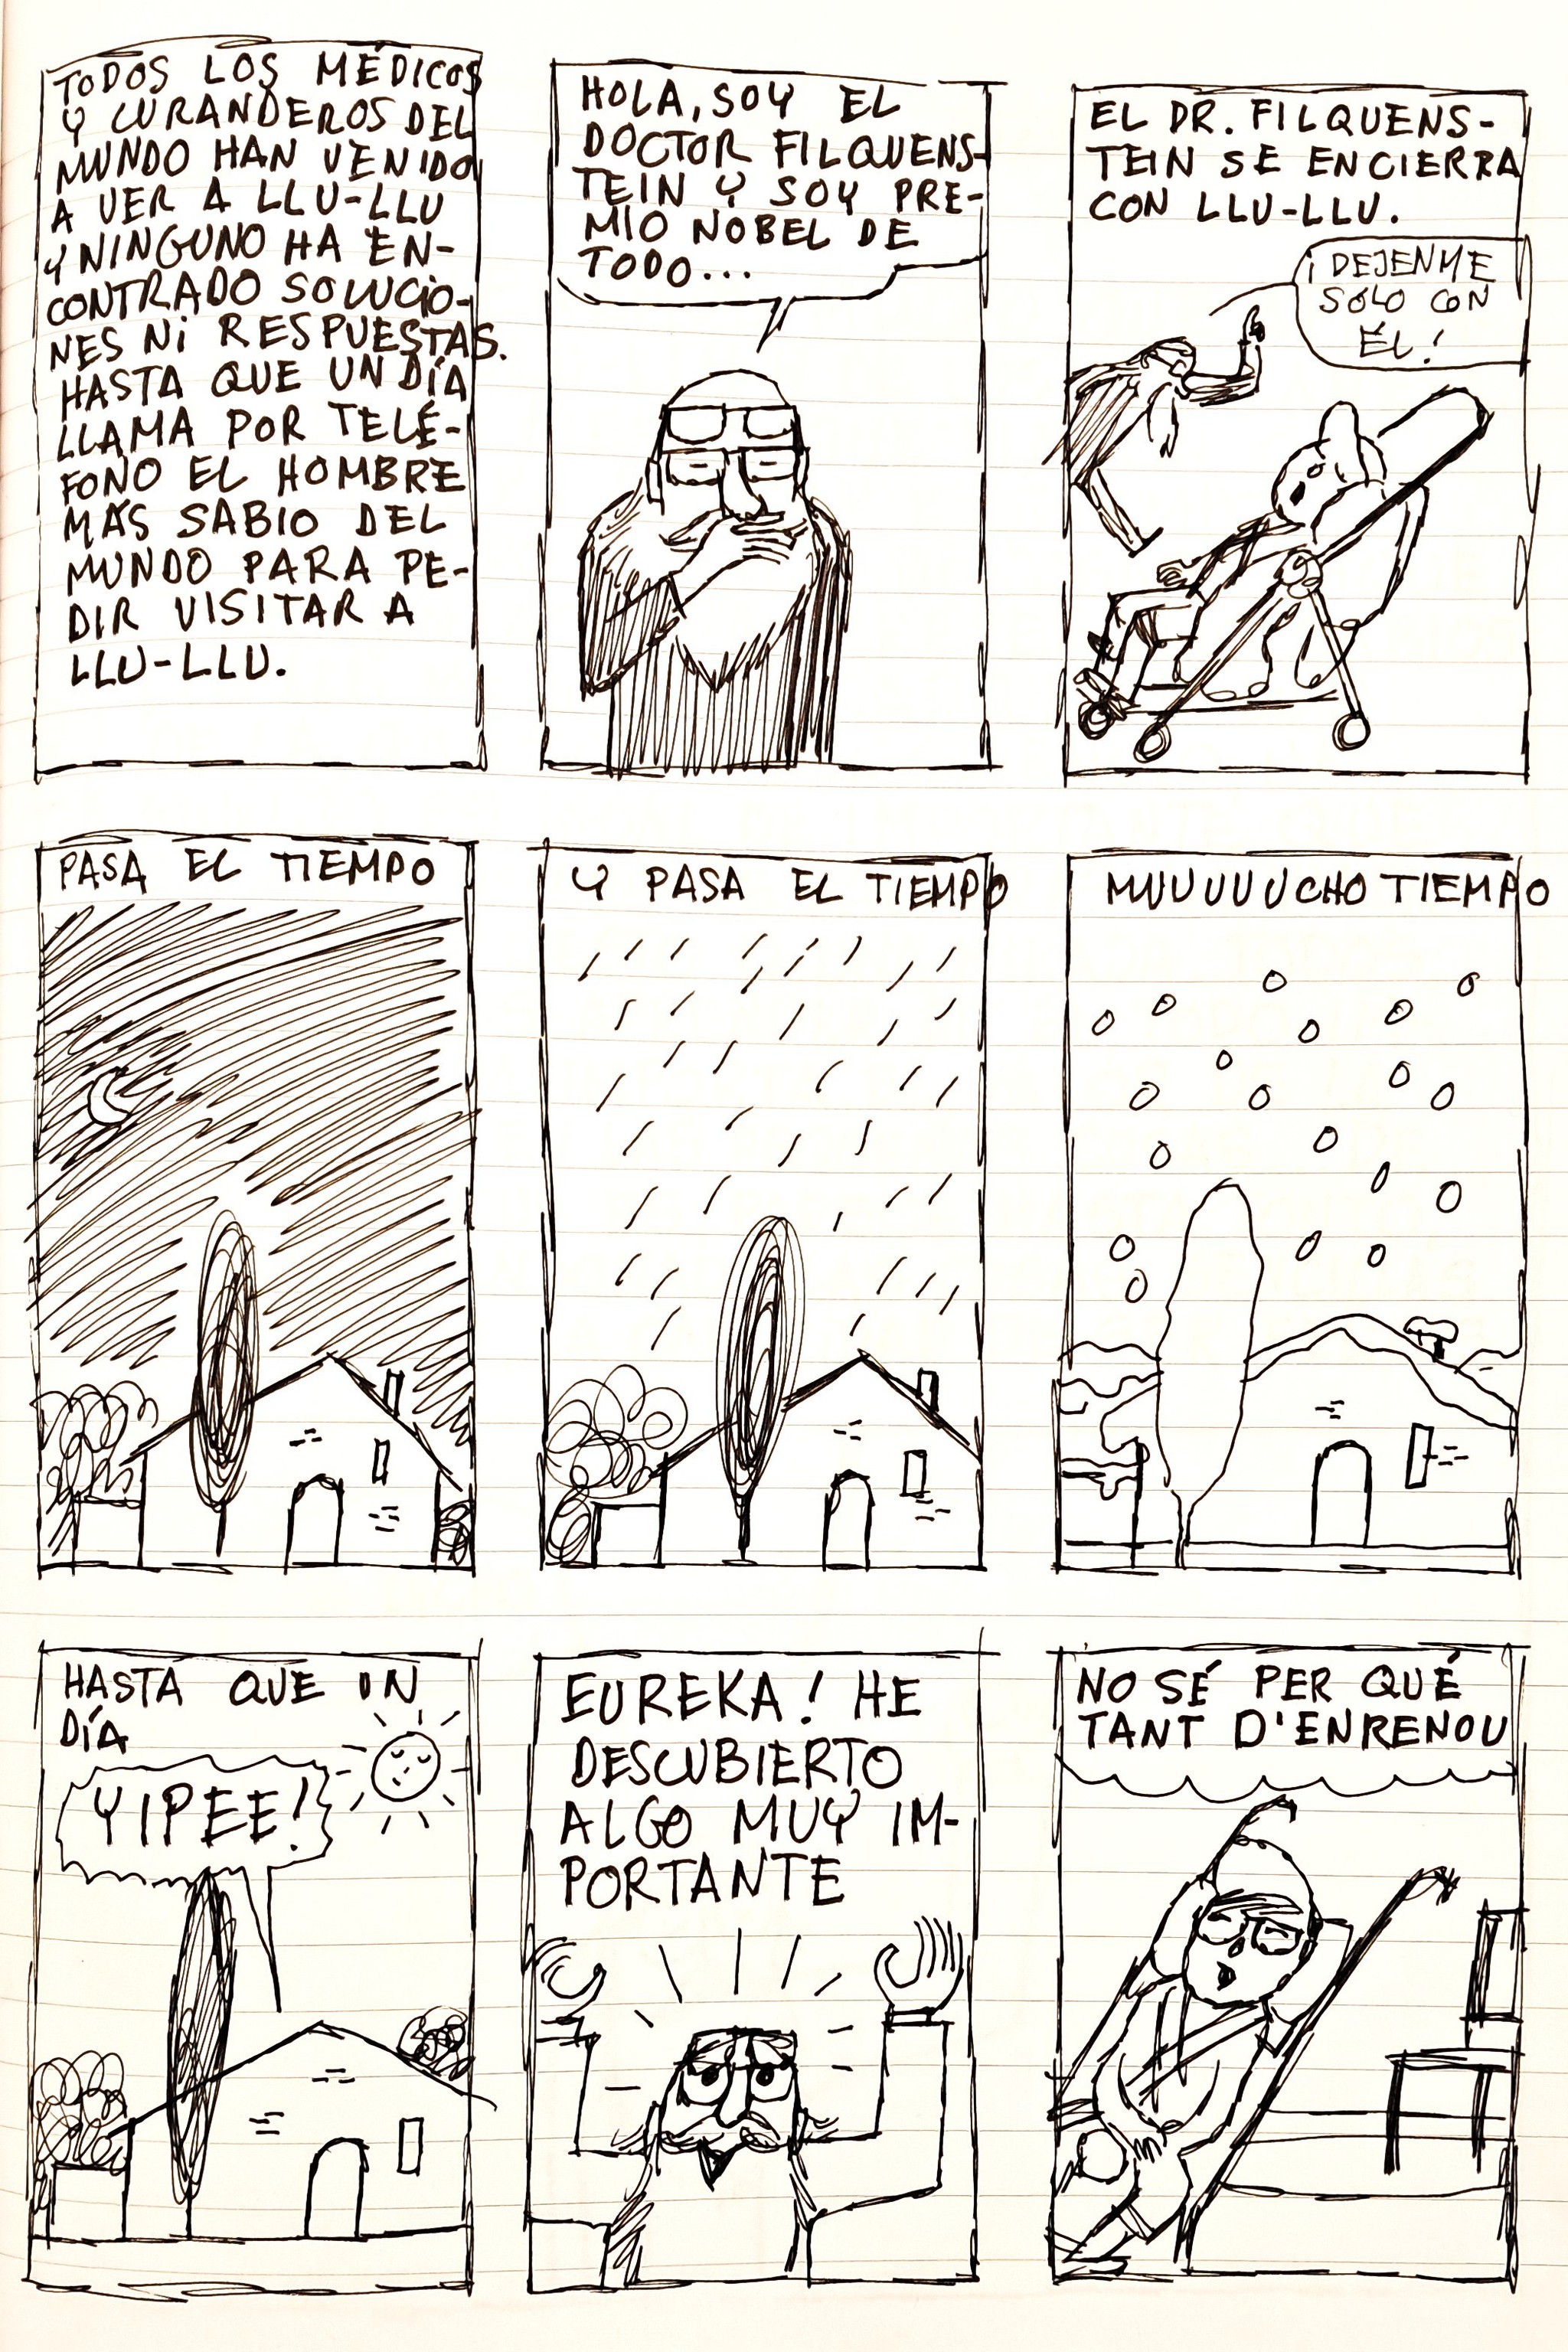 TODOS LOS MÉDICOS
Y CURANDEROS DEL
MUNDO HAN VENIDO
A VER A LLU-LLU
Y NINGUNO HA EN-
CONTRADO SOLUCIO-
NES NI RESPUESTAS.
HASTA QUE UN DÍA
LLAMA POR TELÉ-
FONO EL HOMBRE
MÁS SABIO DEL
MUNDO PARA PE-
DIR VISITAR A
LLU-LLU.
HOLA, SOY EL
DOCTOR FILQUENS-
TEIN Y SOY PRE-
MIO NOBEL DE
TODO...
EL DR. FILQUENS-
TEIN SE ENCIERRA
CON LLU-LLU.
¡DEJENME
SÓLO CON
ÉL!
PASA EL TIEMPO
Y PASA EL TIEMPO
MUUUUUCHO TIEMPO
HASTA QUE UN
DÍA
YIPEE!
EUREKA! HE
DESCUBIERTO
ALGO MUY IM-
PORTANTE
NO SÉ PER QUÉ
TANT D'ENRENOU